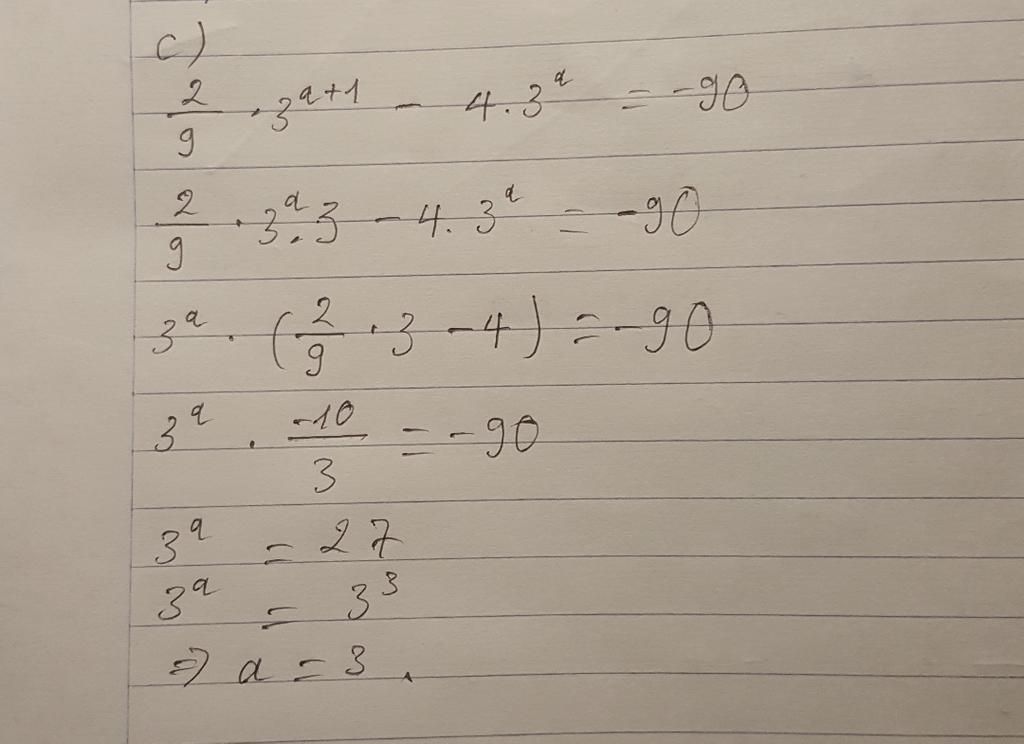 c)
2/9 . 3^(a+1) - 4 . 3^a = -90
2/9 . 3^a . 3 - 4 . 3^a = -90
3^a . (2/9 . 3 - 4) = -90
3^a . -10/3 = -90
3^a = 27
3^a = 3^3
=> a = 3 .